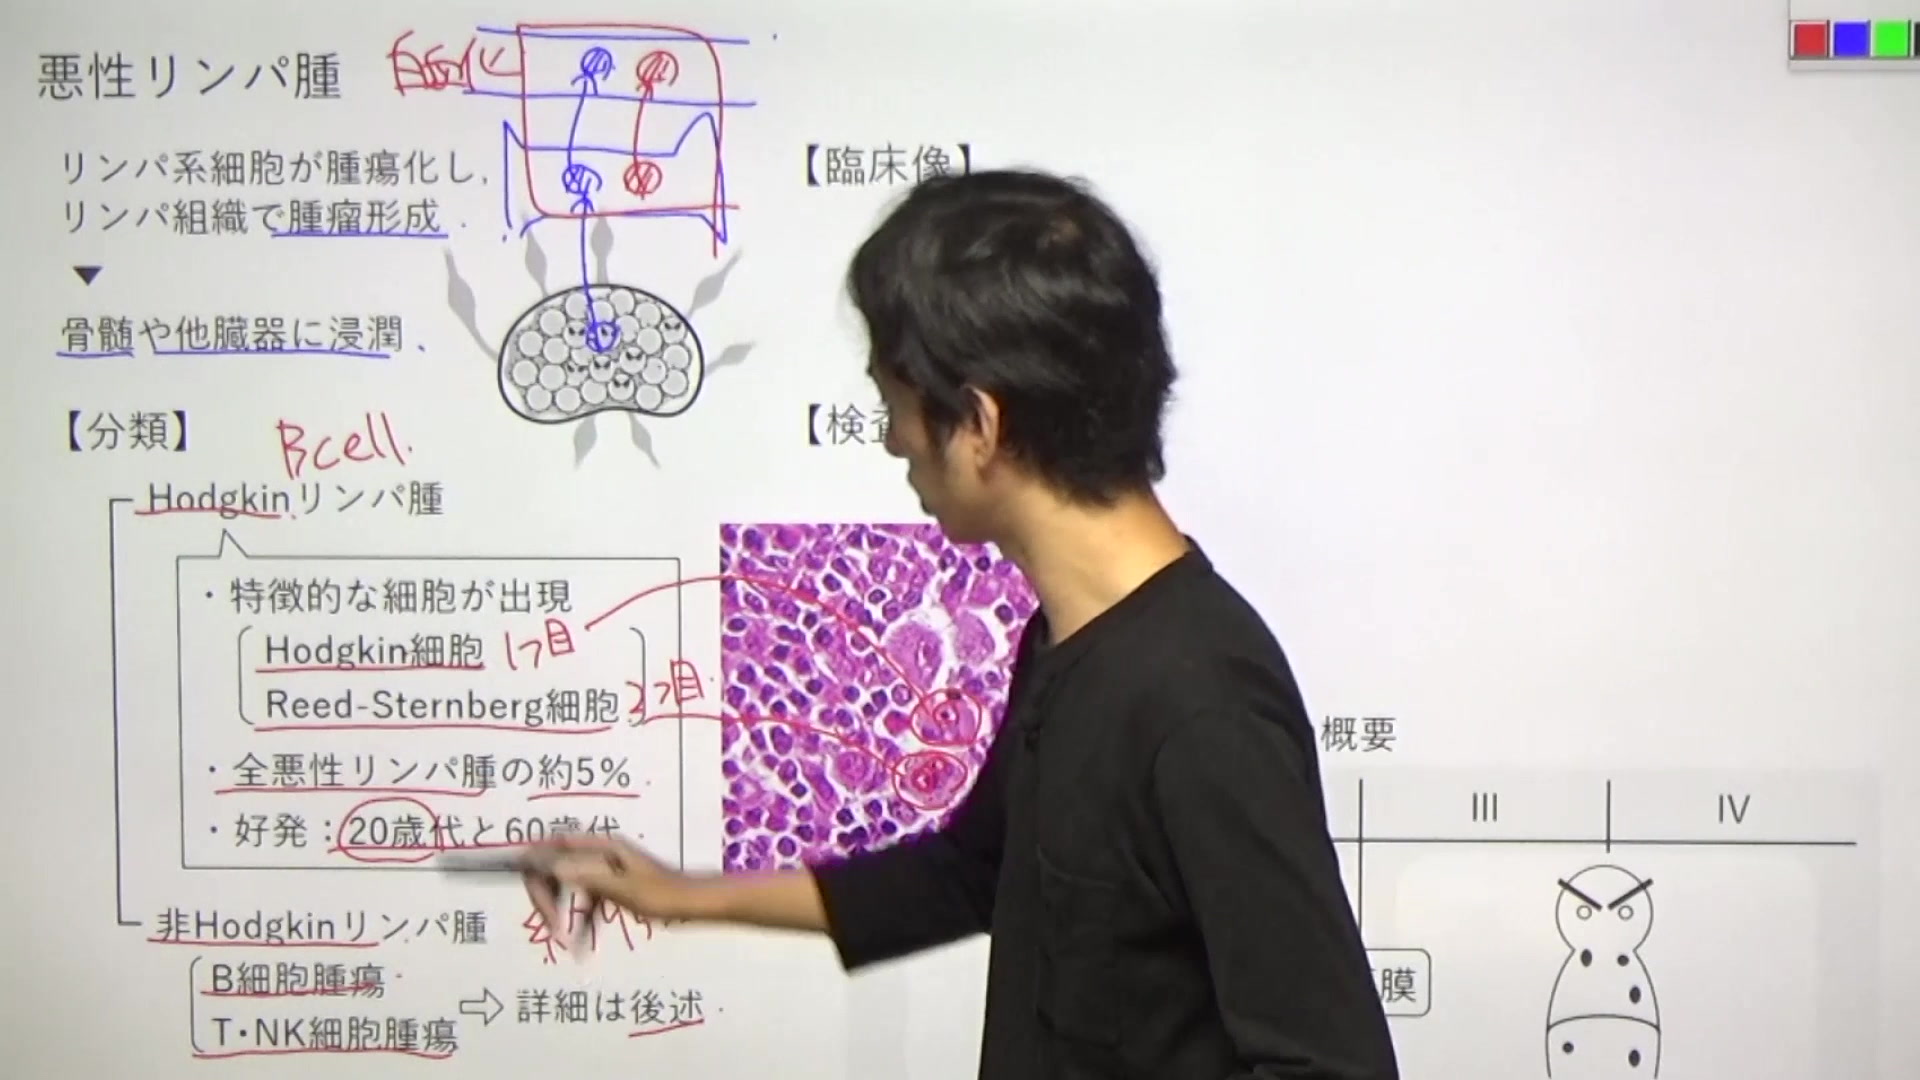 悪性リンパ腫
白血化
リンパ系細胞が腫瘍化し,
リンパ組織で腫瘤形成
骨髄や他臓器に浸潤
【分類】
B cell.
Hodgkinリンパ腫
・特徴的な細胞が出現
Hodgkin細胞 1つ目
Reed-Sternberg細胞 2つ目
・全悪性リンパ腫の約5%
・好発：20歳代と60歳代
非Hodgkinリンパ腫
B細胞腫瘍
T・NK細胞腫瘍
詳細は後述
【臨床像】
【検査
概要
III
IV
膜